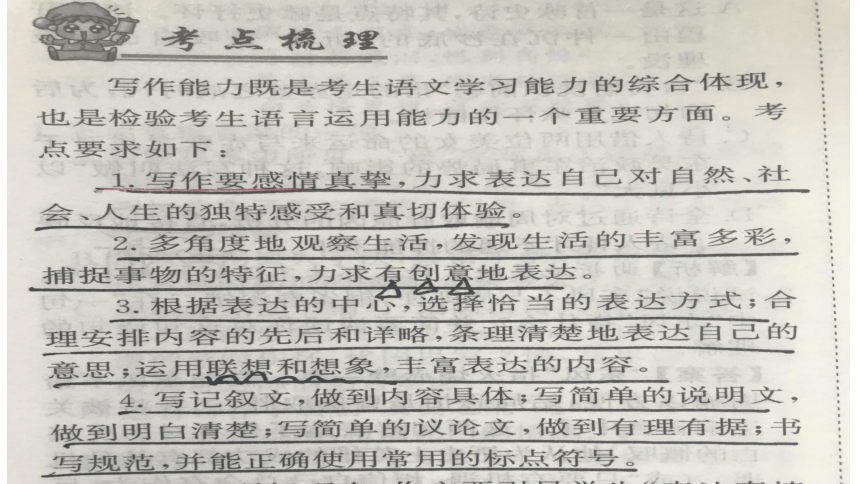 考点梳理
写作能力既是考生语文学习能力的综合体现，
也是检验考生语言运用能力的一个重要方面。考
点要求如下：
1. 写作要感情真挚，力求表达自己对自然、社
会、人生的独特感受和真切体验。
2. 多角度地观察生活，发现生活的丰富多彩，
捕捉事物的特征，力求有创意地表达。
3. 根据表达的中心，选择恰当的表达方式；合
理安排内容的先后和详略，条理清楚地表达自己的
意思；运用联想和想象，丰富表达的内容。
4. 写记叙文，做到内容具体；写简单的说明文，
做到明白清楚；写简单的议论文，做到有理有据；书
写规范，并能正确使用常用的标点符号。